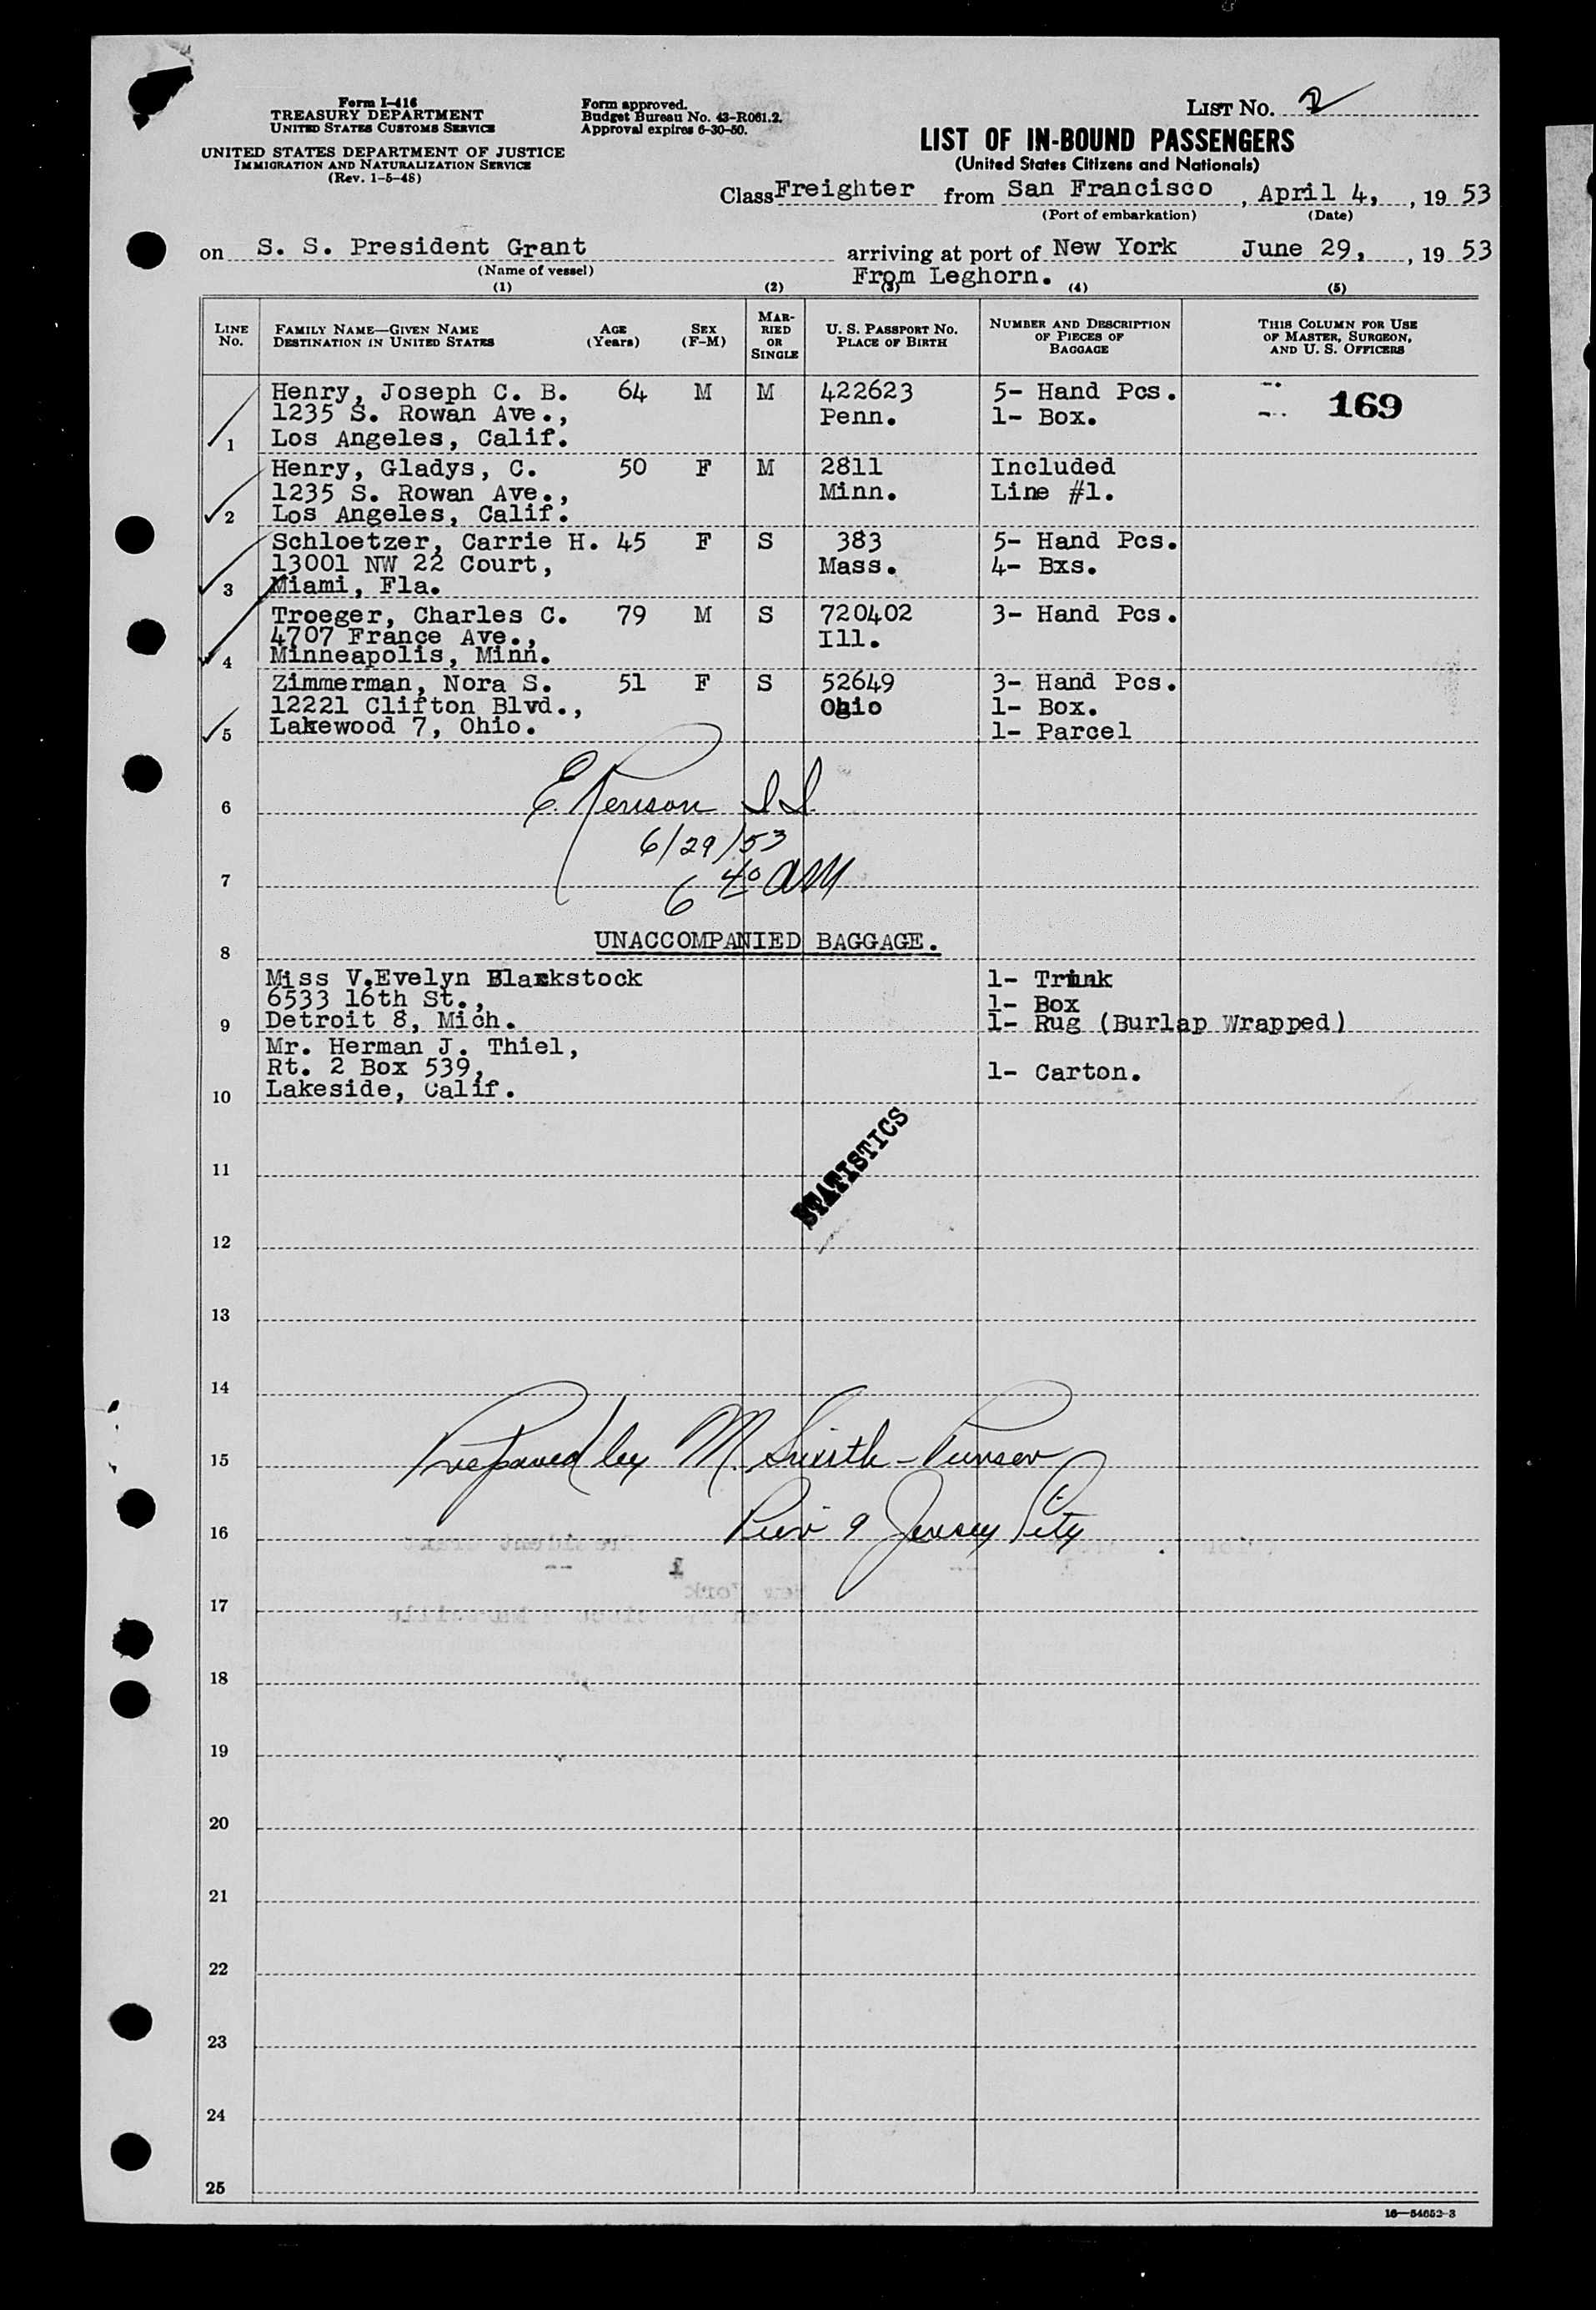 Form I-416
TREASURY DEPARTMENT
UNITED STATES CUSTOMS SERVICE
UNITED STATES DEPARTMENT OF JUSTICE
IMMIGRATION AND NATURALIZATION SERVICE
(Rev. 1-5-48)
Form approved.
Budget Bureau No. 43-R061.2.
Approval expires 6-30-50.
LIST NO. 2
LIST OF IN-BOUND PASSENGERS
(United States Citizens and Nationals)
Class Freighter from San Francisco, April 4, , 19 53
(Port of embarkation) (Date)
on S. S. President Grant arriving at port of New York June 29, , 19 53
(Name of vessel) From Leghorn.
(1) (2) (3) (4) (5)
LINE No. FAMILY NAME—GIVEN NAME DESTINATION IN UNITED STATES AGE (Years) SEX (F-M) MARRIED OR SINGLE U. S. PASSPORT NO. PLACE OF BIRTH NUMBER AND DESCRIPTION OF PIECES OF BAGGAGE THIS COLUMN FOR USE OF MASTER, SURGEON, AND U. S. OFFICERS
Henry, Joseph C. B. 64 M M 422623 5- Hand Pcs. 169
1235 S. Rowan Ave., Penn. 1- Box.
1 Los Angeles, Calif.
Henry, Gladys, C. 50 F M 2811 Included
1235 S. Rowan Ave., Minn. Line #1.
2 Los Angeles, Calif.
Schloetzer, Carrie H. 45 F S 383 5- Hand Pcs.
13001 NW 22 Court, Mass. 4- Bxs.
3 Miami, Fla.
Troeger, Charles C. 79 M S 720402 3- Hand Pcs.
4707 France Ave., Ill.
4 Minneapolis, Minn.
Zimmerman, Nora S. 51 F S 52649 3- Hand Pcs.
12221 Clifton Blvd., Ohio 1- Box.
5 Lakewood 7, Ohio. 1- Parcel
6
6/29/53
7
6 40 AM
UNACCOMPANIED BAGGAGE.
8
Miss V.Evelyn Blackstock 1- Trunk
6533 16th St., 1- Box
9 Detroit 8, Mich. 1- Rug (Burlap Wrapped)
Mr. Herman J. Thiel,
Rt. 2 Box 539, 1- Carton.
10 Lakeside, Calif.
STATISTICS
11
12
13
14
15 Prepared by M. Smith - Purser
16 Pier 9 Jersey City
17
18
19
20
21
22
23
24
25
16—54652-3